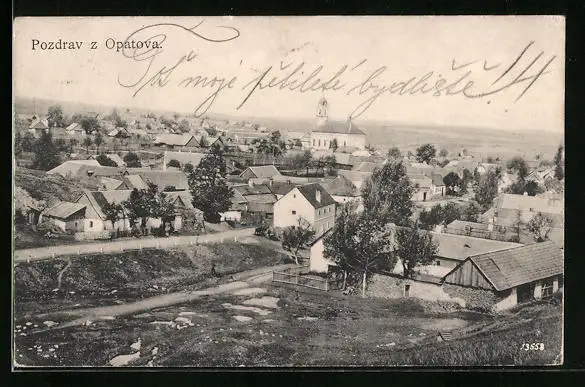 Pozdrav z Opatova.
To moje pětileté bydliště
13558